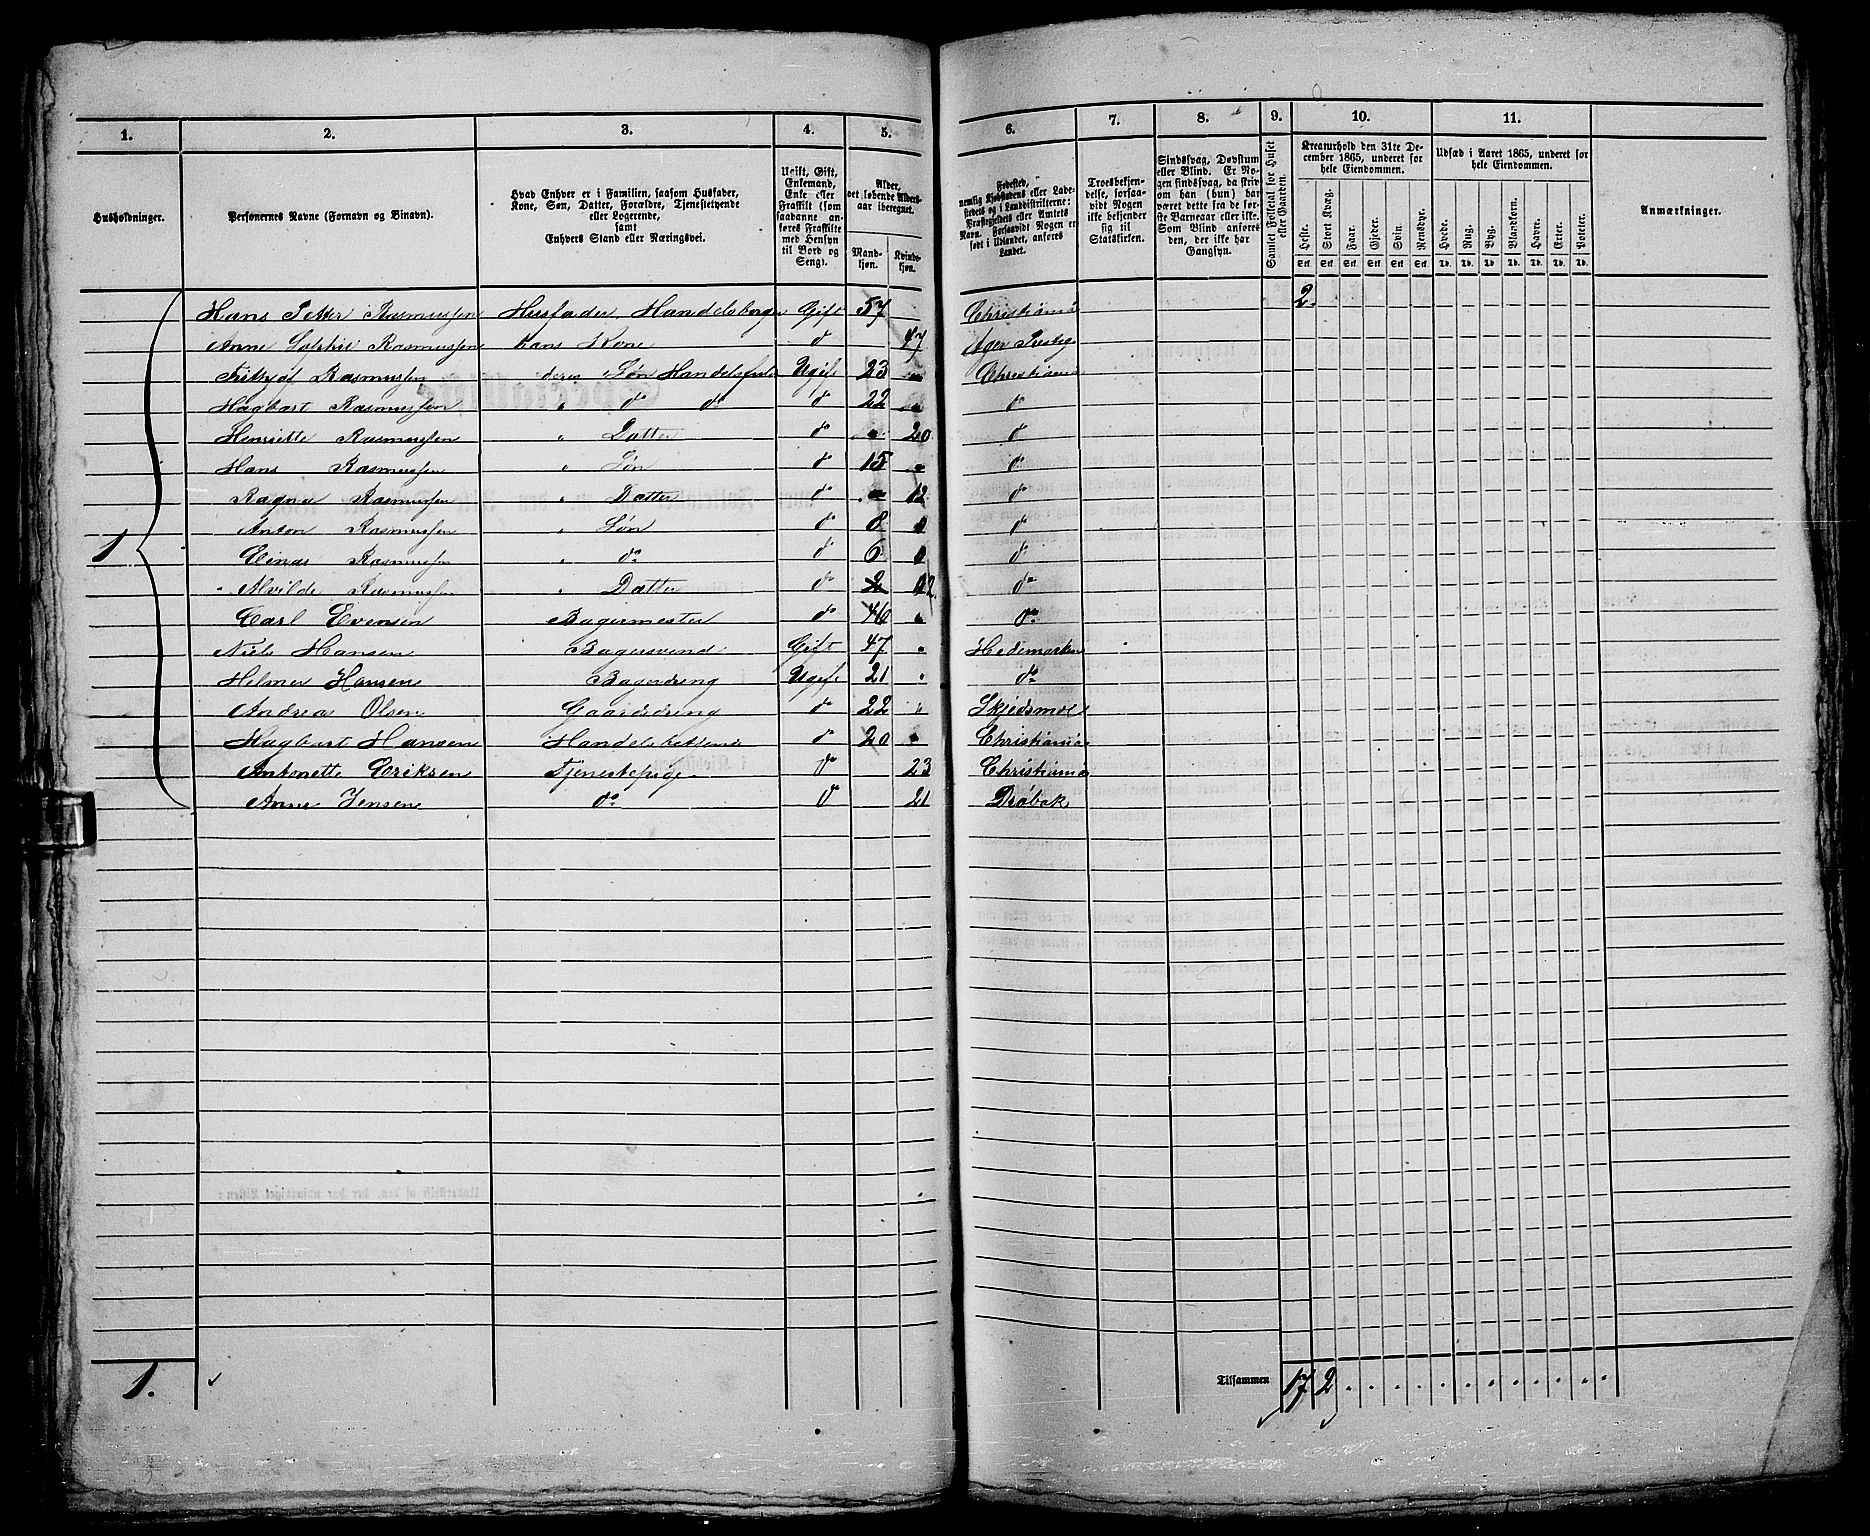 1. 2. 3. 4. 5. 6. 7. 8. 9. 10. 11.
Husholdninger.
Personernes Navne (Fornavn og Binavn).
Hvad Enhver er i Familien, saasom Husfader,
Kone, Søn, Datter, Forældre, Tjenestetyende
eller Logerende,
samt
Enhvers Stand eller Næringsvei.
Ugift, Gift,
Enkemand,
Enke eller
Fraskilt (som
saadanne an-
føres Fraskilte
med Hensyn
til Bord og
Seng).
Alder,
det løbende Alders-
aar iberegnet.
Mand-
kjøn.
Kvinde-
kjøn.
Fødested,
nemlig Kjøbstadens eller Lade-
stedets og i Landdistrikterne:
Præstegjeldets eller Amtets
Navn. Forsaavidt Nogen er
født i Udlandet, anføres
Landet.
Troesbekjen-
delse, forsaa-
vidt Nogen
ikke bekjender
sig til
Statskirken.
Sindssvag, Døvstum
eller Blind. Er No-
gen sindssvag, da skriv
om han (hun) har
været dette fra de før-
ste Barneaar eller ikke.
Som Blind anføres
den, der ikke har
Gangsyn.
Samlet Folketal for Huset
eller Gaarden.
Kreaturhold den 31te De-
cember 1865, underet for
hele Eiendommen.
Heste. Stort Kvæg. Faar. Gjeder. Svin. Rensdyr.
Stk. Stk. Stk. Stk. Stk. Stk.
Udsæd i Aaret 1865, underet for
hele Eiendommen.
Hvede. Rug. Byg. Blandkorn. Havre. Erter. Poteter.
Td. Td. Td. Td. Td. Td. Td.
Anmærkninger.
Hans Petter Rasmussen Husfader, Handelsborger Gift 57 Christiania 2.
Anne Rasmussen hans Kone do 47 Ager
Rasmussen deres Søn Ugift 23 Christiania
Hagbart Rasmussen " do do do 22 " do
Henriette Rasmussen " Datter do " 20 do
Hans Rasmussen " Søn do 15 " do
Ragna Rasmussen " Datter do " 12 do
Anton Rasmussen " Søn do 8 do
1 Einar Rasmussen " do do 6 do
Alvilde Rasmussen " Datter do 2 do
Carl Evensen Bagermester do 46 " do
Niels Hansen Bagersvend Gift 47 " Hedemarken
Helmer Hansen Bagerdreng Ugift 21 " do
Andreas Olsen Gaardsdreng do 22 " Skjedsmo
Hagbart Hansen do 20 " Christiania
Antonette Eriksen Tjenestepige do 23 Christiania
Anne Jensen do do 21 Drøbak
1. Tilsammen 17 2 . . . . . . . . . . . .